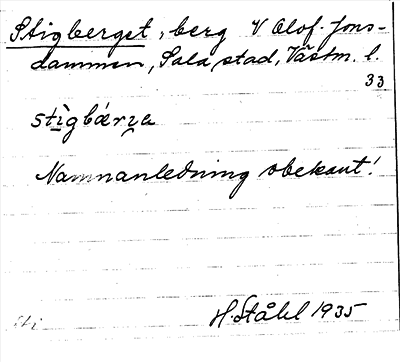 Stigberget, berg V Olof-Jons-
dammen, Sala stad, Västm. l.
33
Namnanledning obekant!
H. Ståhl 1935
Sti